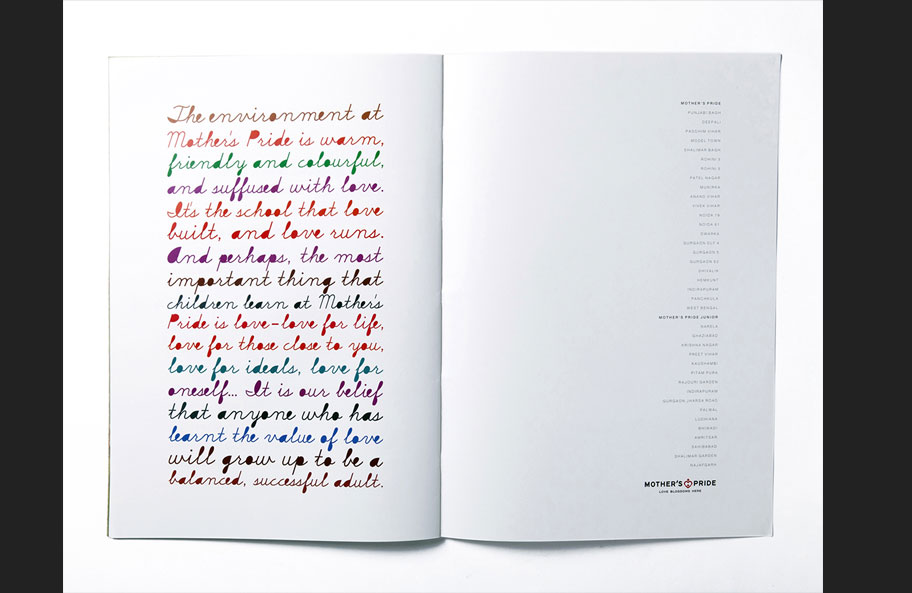 The environment at
Mother's Pride is warm,
friendly and colourful,
and suffused with love.
It's the school that love
built, and love runs.
And perhaps, the most
important thing that
children learn at Mother's
Pride is love-love for life,
love for those close to you,
love for ideals, love for
oneself... It is our belief
that anyone who has
learnt the value of love
will grow up to be a
balanced, successful adult.
MOTHER'S PRIDE
PUNJABI BAGH
DEEPALI
PASCHIM VIHAR
MODEL TOWN
SHALIMAR BAGH
ROHINI 3
ROHINI 3
PATEL NAGAR
MUNIRKA
ANAND VIHAR
VIVEK VIHAR
NOIDA
NOIDA 61
DWARKA
GURGAON DLF 4
GURGAON 5
GURGAON 52
SHIVALIK
HEMKUNT
INDIRAPURAM
PANCHKULA
WEST BENGAL
MOTHER'S PRIDE JUNIOR
NARELA
GHAZIABAD
KRISHNA NAGAR
PREET VIHAR
KAUSHAMBI
PITAM PURA
RAJOURI GARDEN
INDIRAPURAM
GURGAON JHARSA ROAD
PALWAL
LUDHIANA
BHIWADI
AMRITSAR
SAHIBABAD
SHALIMAR GARDEN
NAJAFGARH
MOTHER'S PRIDE
LOVE BLOSSOMS HERE